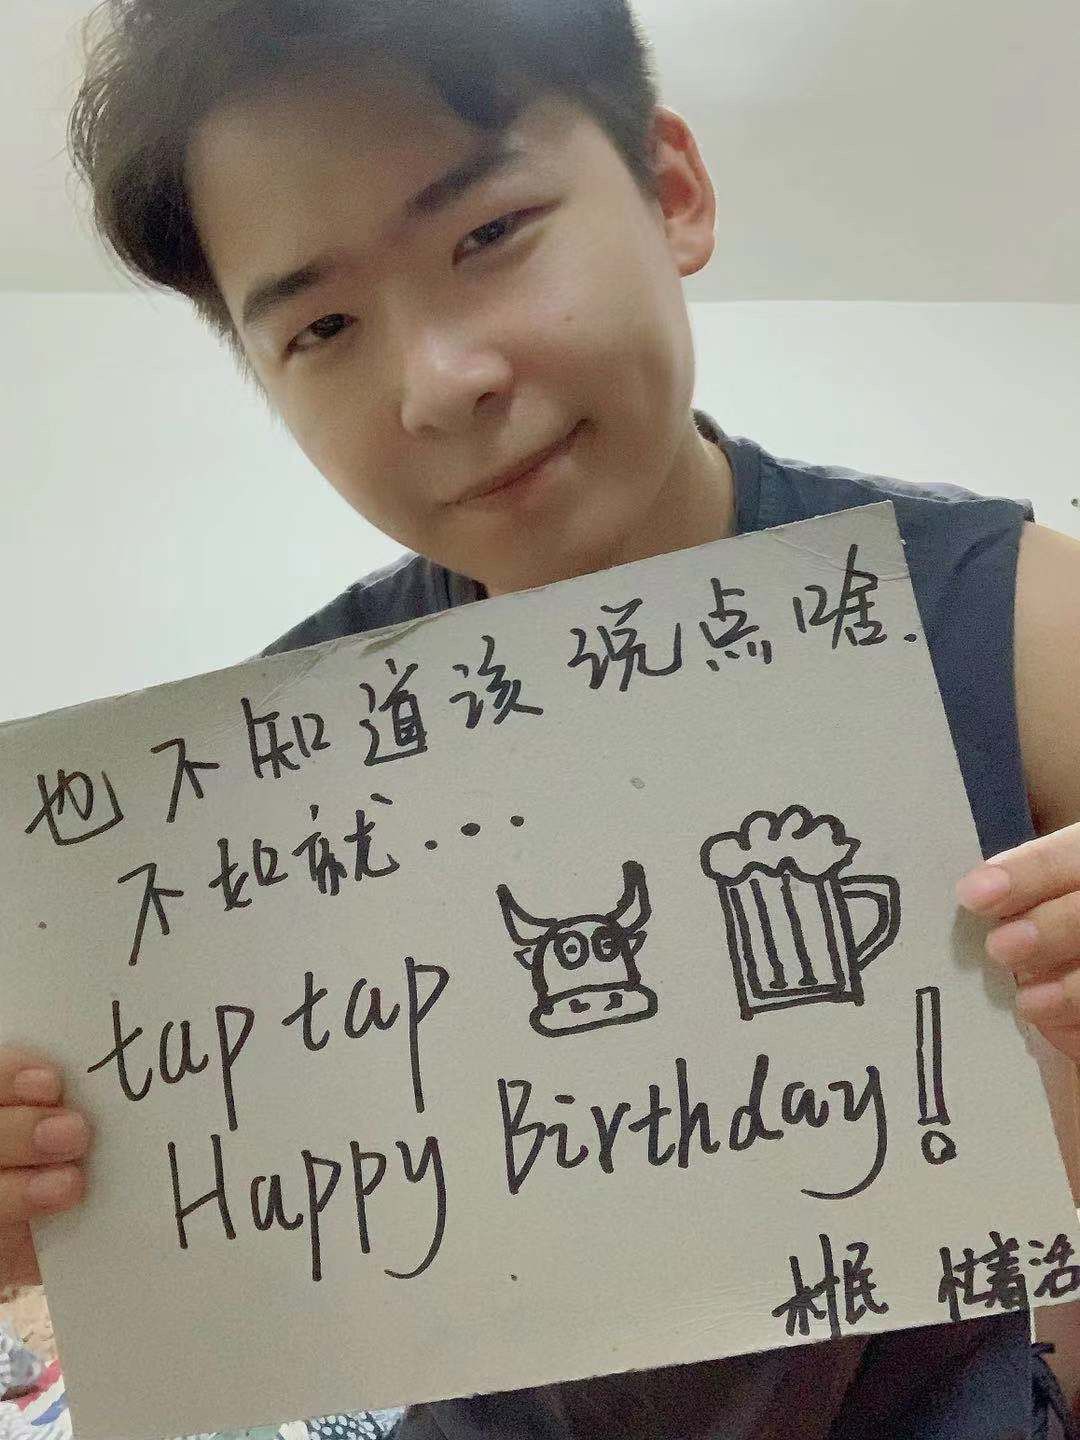 也不知道该说点啥.
不如就...
tap tap
Happy Birthday!
村民 忲着活